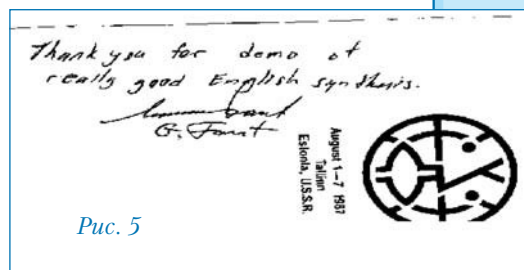 Thank you for demo of
really good English synthesis.
G. Fant
August 1–7 1987
Tallinn
Estonia, U.S.S.R.
Рис. 5